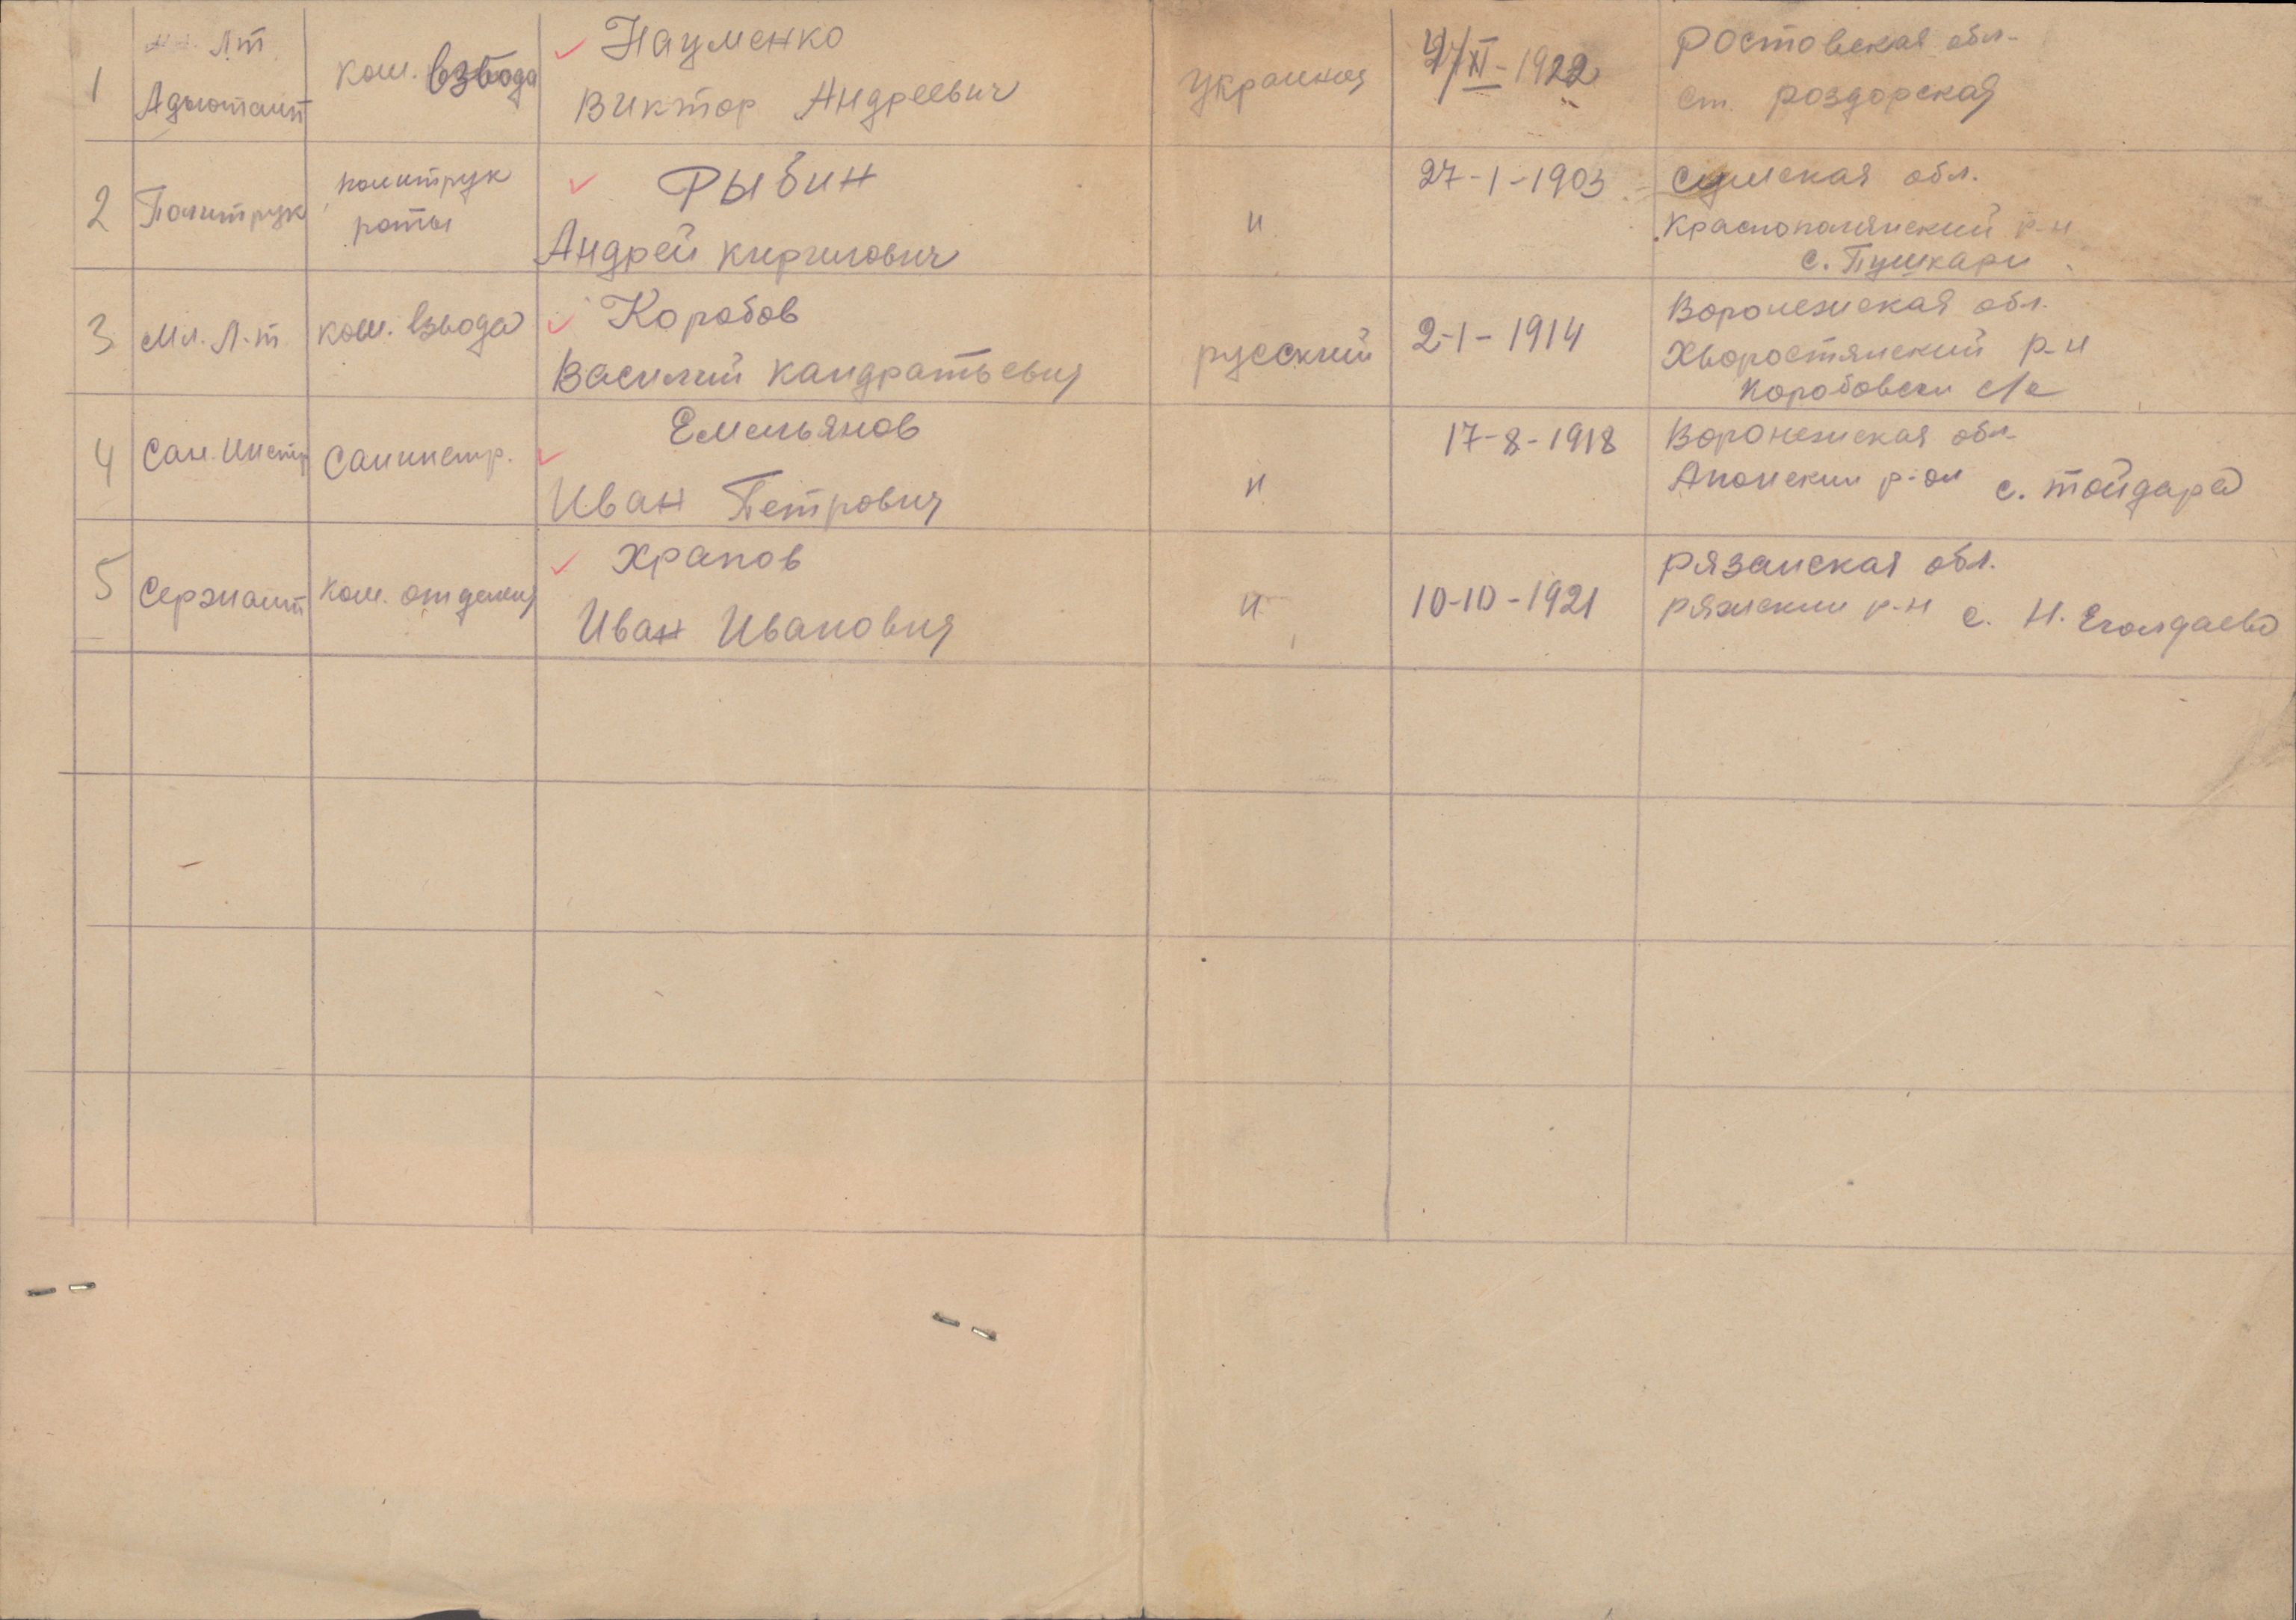 1
Лт
Адьютант
ком. взвода
Науменко
Виктор Андреевич
украинец
XI - 1922
Ростовская обл.
ст. роздорская
2
Политрук
политрук
роты
Рыбин
Андрей Киргилович
"
27-1-1903
Сумская обл.
Краснополянский р-н
с. Пушкари
3
Мл. Л-т
ком. взвода
Коробов
Василий Кандратьевич
русский
2-1-1914
Воронежская обл.
Хворостянский р-н
Коробовски с/с
4
Сан. Инстр
Санинстр.
Емельянов
Иван Петрович
"
17-8-1918
Воронежская обл.
Анонский р-он с. Тойдара
5
Сержант
ком. отделия
Храпов
Иван Иванович
"
10-10-1921
Рязанская обл.
Ряжский р-н с. Н. Еголдаево